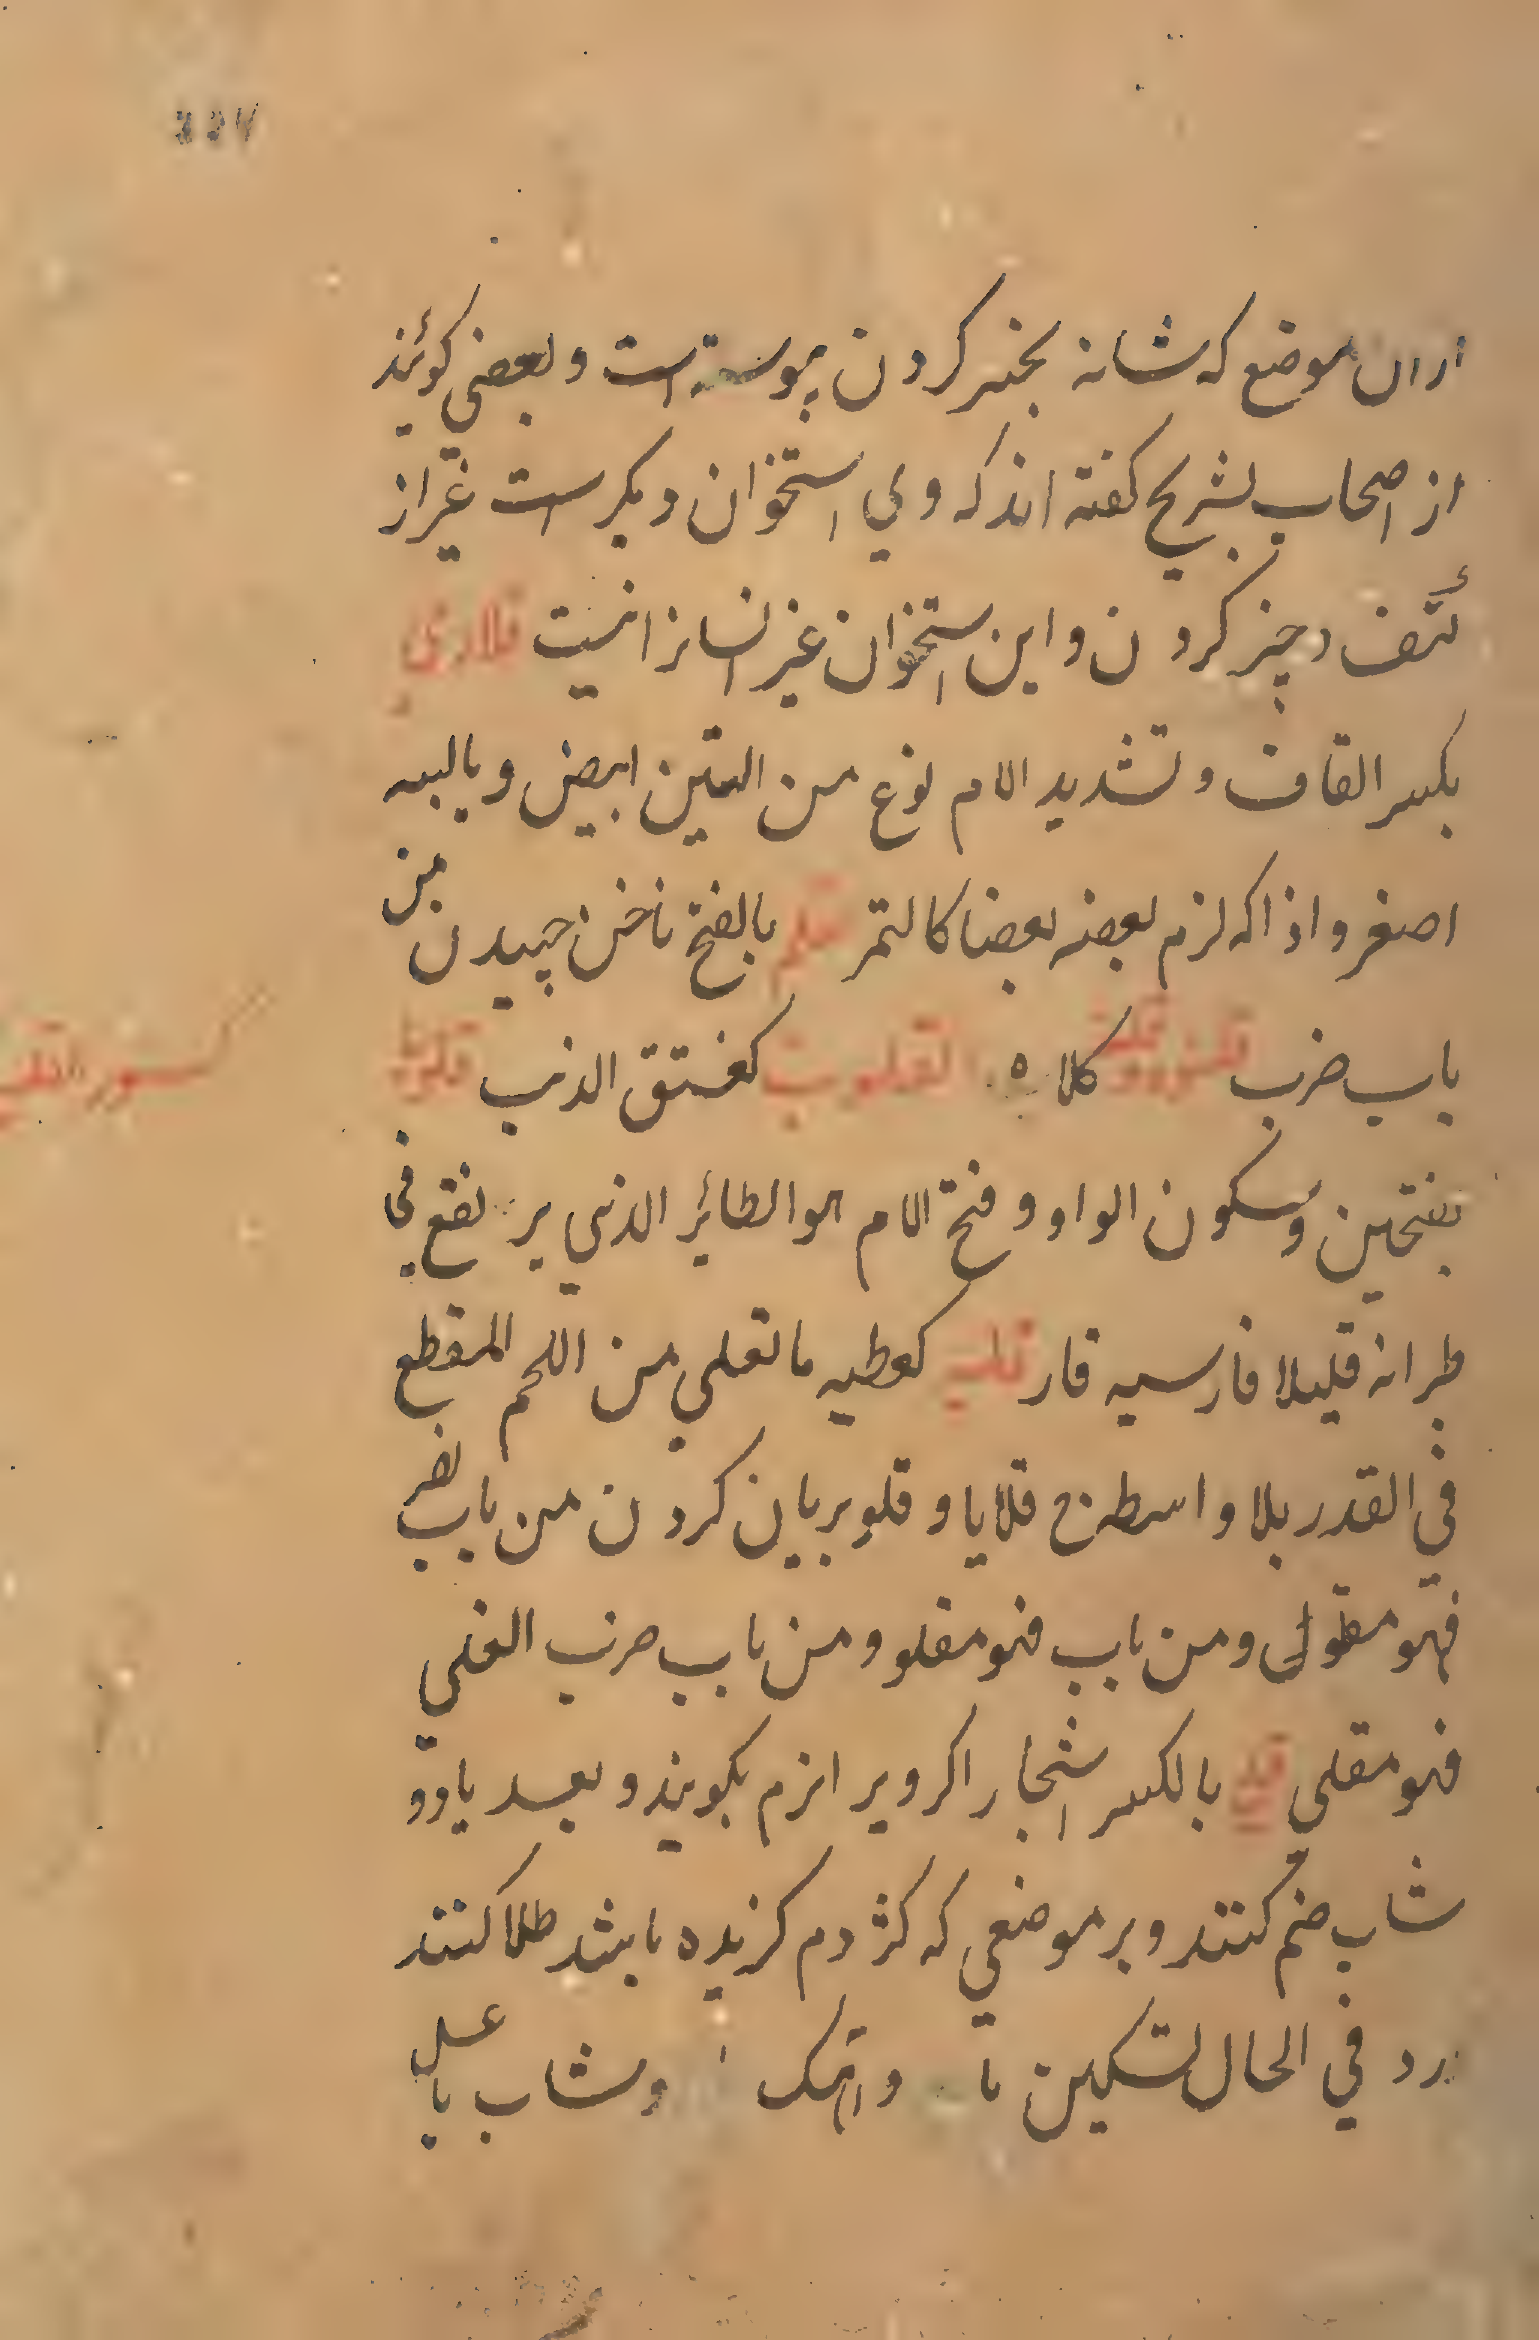 ازان موضع که شانه بخبر کردن پیوسته است و بعضی کوئیند
از اصحاب تشریح کفته اند که وی استخوان دیکرست غیر از
کتف و چنبر کردن و این استخوان غیر انسانرا نیست قلاری
بکسر القاف و تشدید الام نوع من التین ابیض و یابسه
اصفر و اذا اکه لزم بعضه بعضا کالتمر قلم بالفتح ناخن چیدن من
باب ضرب کلاه القلوب کغستق الذئب
بفتحتین و سکون الواو و فتح الام هو الطائر الذی یرتفع فی
طیرانه قلیلا فارسیه قار قلیه کعطیه ما تقلی من اللحم المقطع
فی القدر بلا واسطه ج قلایا و قلو بریان کردن من باب نصر
فهو مقلو و من باب ضرب القلی
فهو مقلی قلی بالکسر اشخار اکرویرا نرم بکویند و بعسد یا دو
شاب ضم کنند و بر موضعی که کژدم کزیده باشد طلا کنند
درد فی الحال تسکین یا و اهک و شاب یا عسل